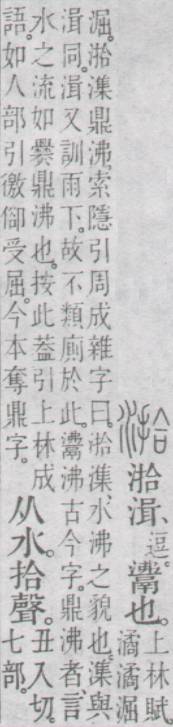 湁湁湒、逗。鬻也。上林賦
潏潏淈
淈。湁潗鼎沸。索隱引周成雜字曰。湁潗、水沸之貌也。潗與
湒同。湒又訓雨下。故不類廁於此。鬻沸古今字。鼎沸者、言
水之流如爨鼎沸也。按此葢引上林成
語。如人部引徼御受屈。今本奪鼎字。
从水。拾聲。
丑入切。
七部。